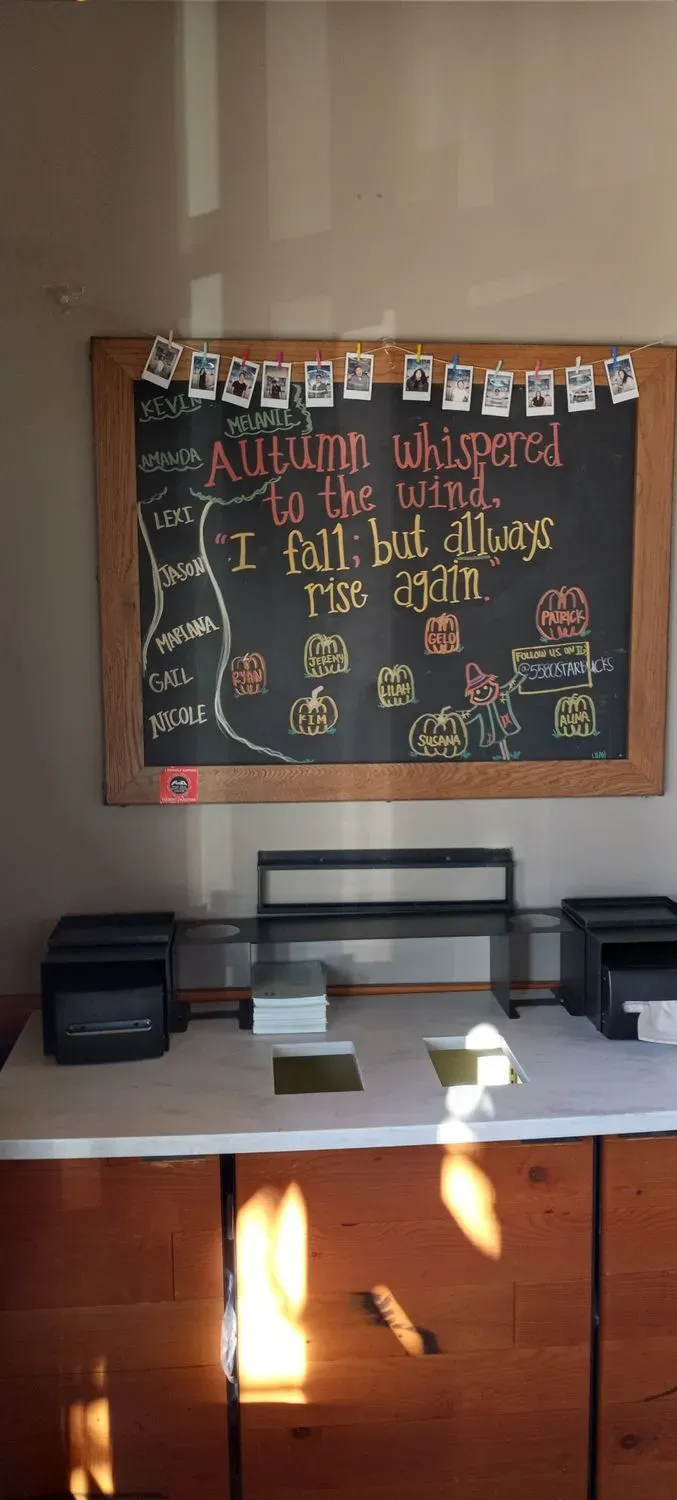 KEVIN
MELANIE
AMANDA
AUtumn whispered
to the wind,
"I fall; but allways
rise again."
LEXI
JASON
MARIANA
GAIL
NICOLE
RYAN
JEREMY
KIM
LILAH
GELO
SUSANA
PATRICK
FOLLOW US ON IG
@5580STARBUCKS
ALINA
LILAH